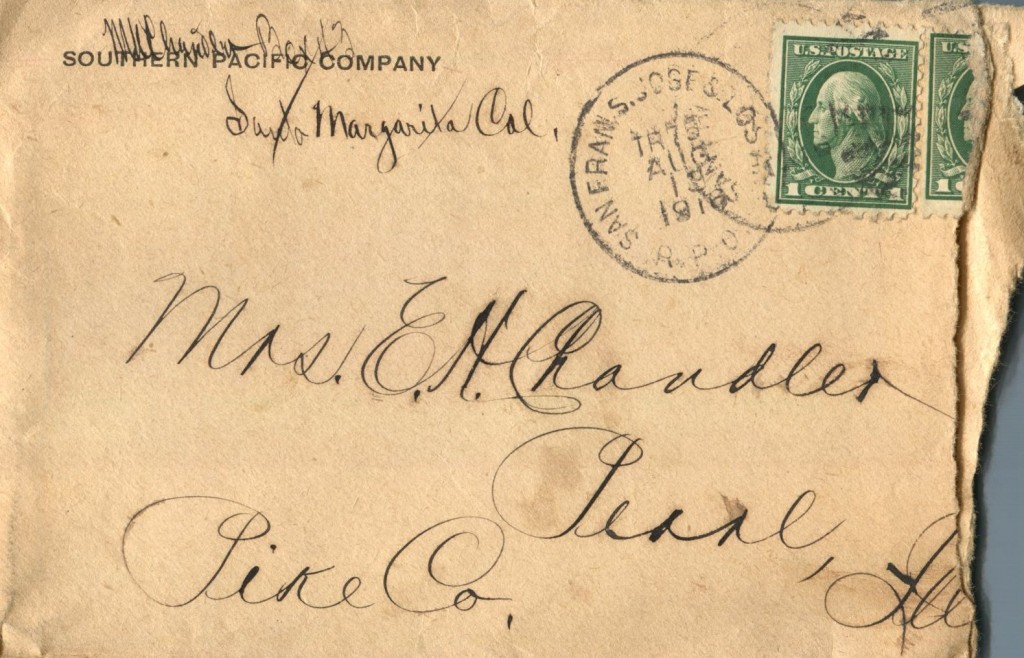 M H Chandler Box 43
SOUTHERN PACIFIC COMPANY
Santa Margarita Cal.
SAN FRAN. S. JOSE & LOS
TR 
AUG
1
191
R.P.O.
U.S. POSTAGE
1 CENT 1
U.S.
1
Mrs. E. H. Chandler
Pearl,
Pike Co. Ill